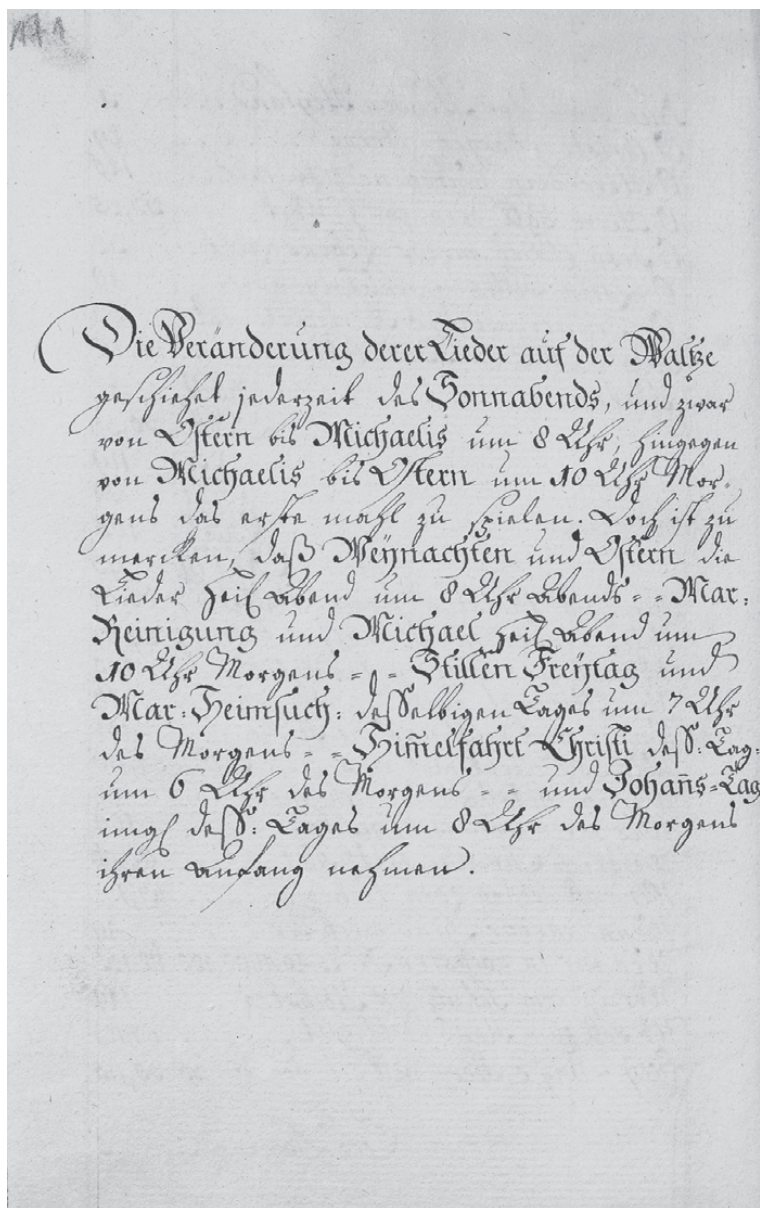 171
Die Veränderung derer Lieder auf der Waltze
geschiehet jederzeit des Sonnabends, und zwar
von Ostern bis Michaelis um 8 Uhr, hingegen
von Michaelis bis Ostern um 10 Uhr Mor-
gens das erste mahl zu spielen. Doch ist zu
mercken, daß Weÿnachten und Ostern die
Lieder Heil. Abend um 8 Uhr Abends - - Mar:
Reinigung und Michael Heil. Abend um
10 Uhr Morgens - - Stillen Freÿtag und
Mar: Heimsuch: desselbigen Tages um 7 Uhr
des Morgens - - Him̃elfahrt Christi dess: Tag:
um 6 Uhr des Morgens - - und Johan̄s-Tag
imgl. dess: Tages um 8 Uhr des Morgens
ihren Anfang nehmen.